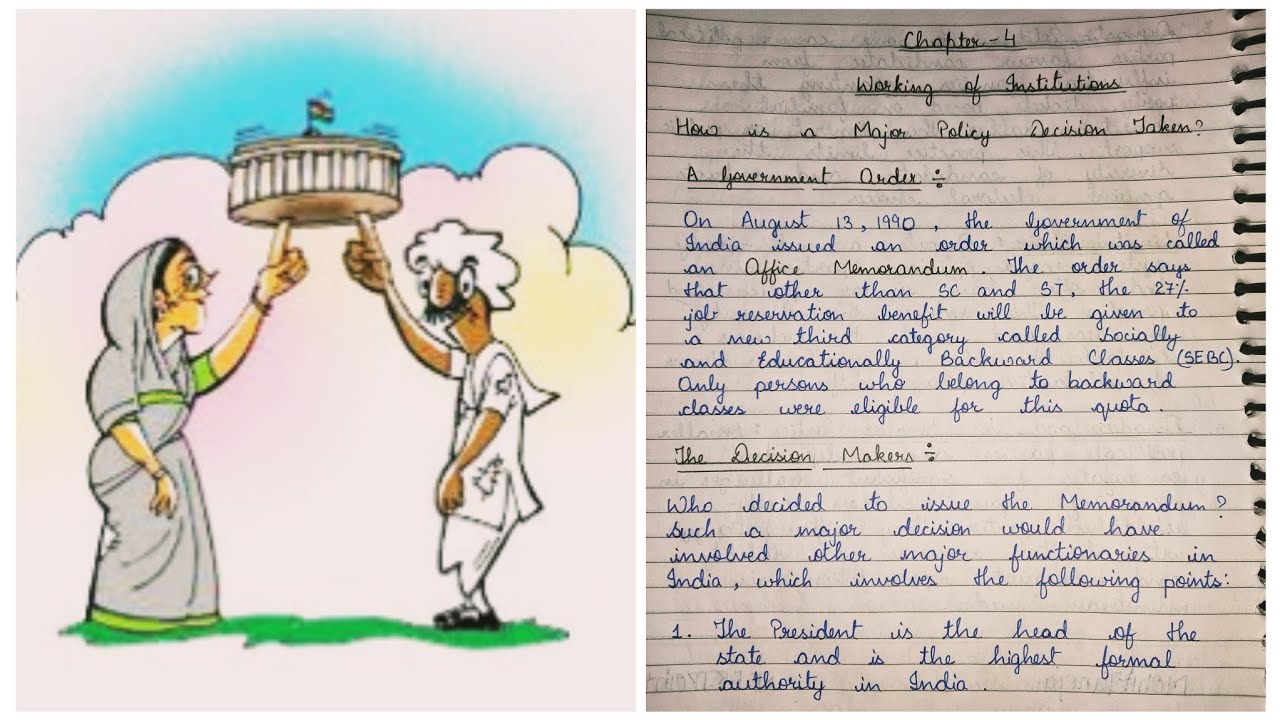 Chapter-4
Working of Institutions
How is a Major Policy Decision Taken?
A Government Order ÷
On August 13, 1990, the Government of
India issued an order which was called
an Office Memorandum. The order says
that other than SC and ST, the 27%
job reservation benefit will be given to
a new third category called Socially
and Educationally Backward Classes (SEBC).
Only persons who belong to backward
classes were eligible for this quota.
The Decision Makers ÷
Who decided to issue the Memorandum?
Such a major decision would have
involved other major functionaries in
India, which involves the following points:
1. The President is the head of the
state and is the highest formal
authority in India.